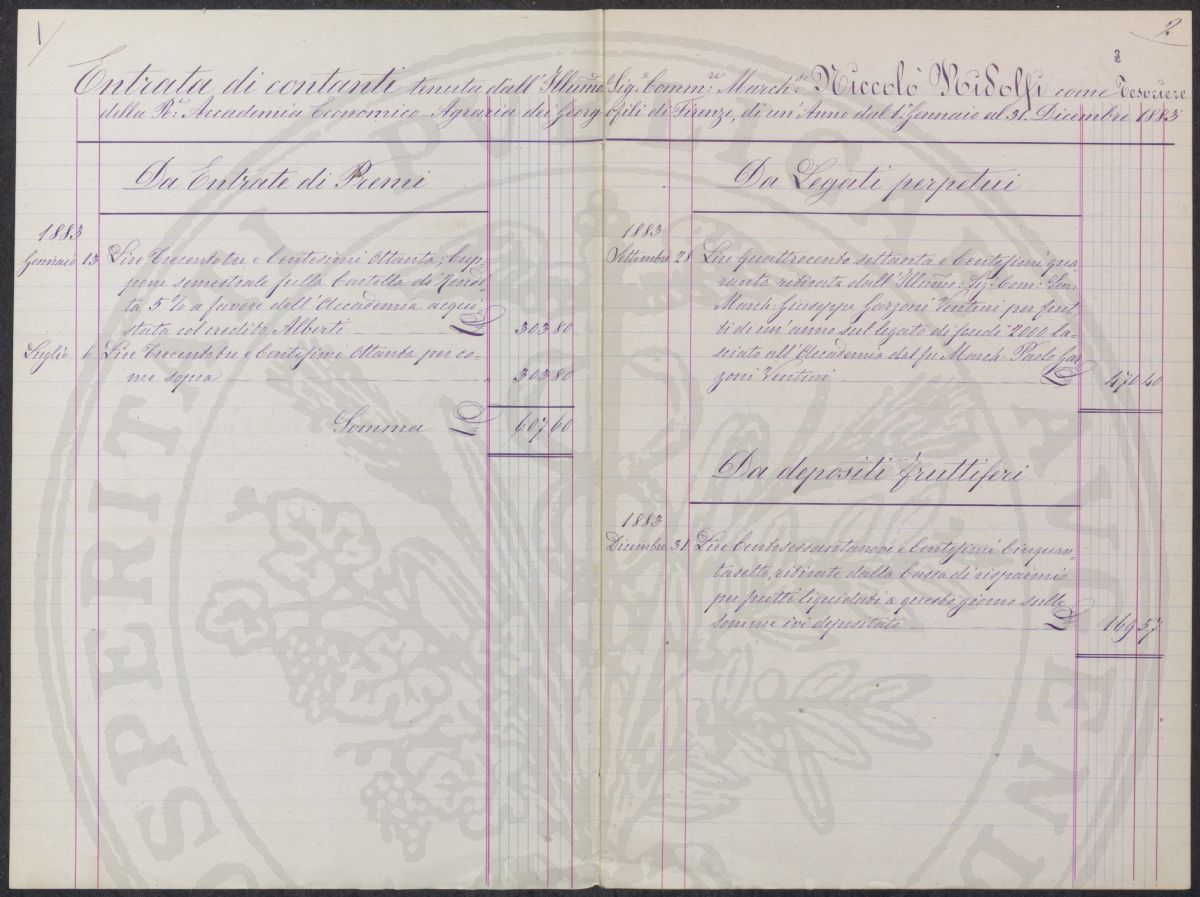 1
2
2
Entrata di contanti tenuta dall' Illumo Sigr Commre Marchse Niccolò Ridolfi come Tesoriere
della Ra Accademia Economico-Agraria dei Georgofili di Firenze, di un'Anno dal 1° Gennaio al 31. Dicembre 1883
Da Entrate di Premi
1883
Gennaio 13 Lire Trecentotre e Centesimi Ottanta; Cup-
pone semestrale sulla Cartella di Rendi-
ta 5 % a favore dell'Accademia acqui-
stata col credito Alberti £ 303 80
Luglio 6 Lire Trecentotre e Centesimi Ottanta per co-
me sopra " 303 80
Somma £ 607 60
Da Legati perpetui
1883
Settembre 28 Lire Quattrocento settanta e Centesimi qua-
ranta ritirate dall'Illumo: Sig: Com: Sen:
March: Giuseppe Garzoni Venturi per frut-
ti di un'anno sul legato di scudi 2000 la-
sciato all'Accademia dal fu March: Paolo Gar-
zoni Venturi £ 470 40
Da depositi fruttiferi
1883
Dicembre 31 Lire Centosessantanove e Centesimi Cinquan-
tasette, ritirate dalla Cassa di risparmio
per frutti liquidati a questo giorno sulle
somme ivi depositate £ 169 57
PROSPERITATI PUBLICAE AUGENDAE